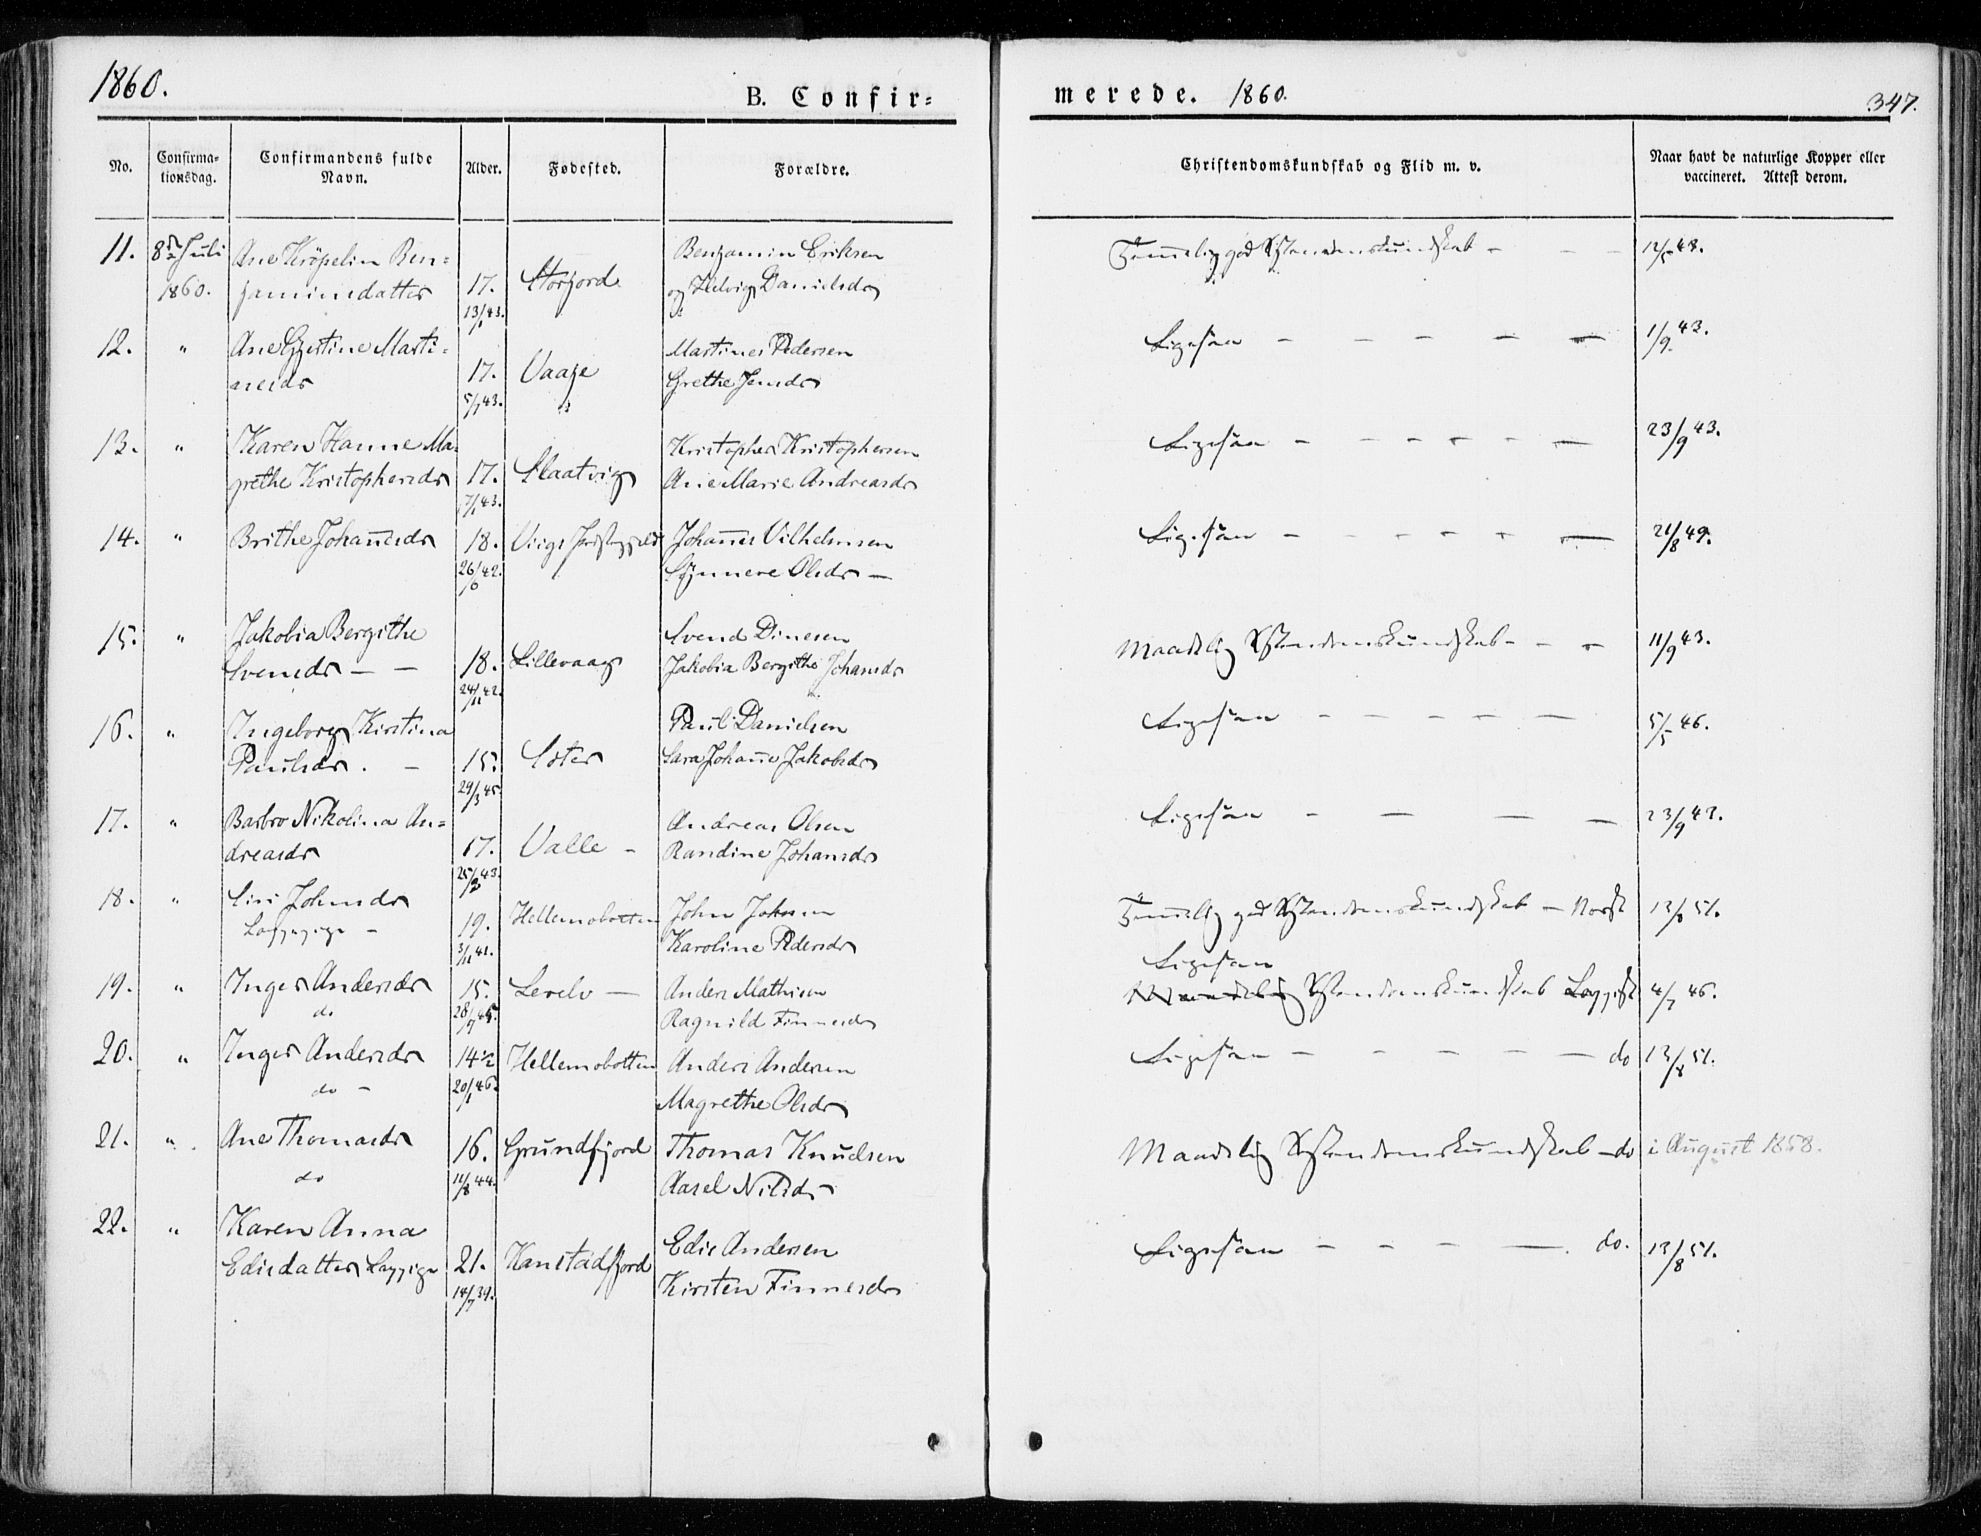 1860.
B. Confir=
merede. 1860.
347.
No.
Confirma-
tionsdag.
Confirmandens fulde
Navn.
Alder.
Fødested.
Forældre.
Christendomskundskab og Flid m. v.
Naar havt de naturlige Kopper eller
vaccineret. Attest derom.
11. 8de Juli Ane Kröpelin Ben= Benjamin Eriksen
1860. jaminsdatter 17. Storjord og Hedvig Danielsdr
13/1 43.
Temmelig god Kristendomskundskab - - - 12/5 48.
12. " Ane Marti= Martines Pedersen
nesdr 17. Vaage Grethe Jensdr
5/1 43.
Ligesaa - - - - - 1/9 43.
13. " Karen Hanne Ma- Kristopher Kristophersen
grethe Kristophersdr 17. Slaatvig Ane Marie Andreasdr
7/1 43.
Ligesaa - - - - - - 23/9 43.
14. " Brithe Johannesdr 18. Johannes Vilhelmsen
26/10 42. Olsdr -
Ligesaa - - - - - - 21/8 49.
15. " Jakobia Bergithe Svend Dinesen
Svensdr - - 18. Lillevaag Jakobia Bergithe Johansdr
24/11 42.
Maadelig Kristendomskundskab - - - 11/9 43.
16. " Ingeborg Kirstina Paul Danielsen
Paulsdr. - 15. Sara Johanne Jakobsdr
29/3 45.
Ligesaa - - - - - 5/5 46.
17. " Barbro Nikolina An= Andreas Olsen
dreasdr 17. Valle - Randine Johansdr
25/2 43.
Ligesaa - - - - 23/9 43.
18. " Siri Johnsdr 19. Hellemobotten John Johnsen
Lappepige - 3/11 41. Karoline Pedersdr
Temmelig god Kristendomskundskab - Norsk 13/8 51.
19. " Inger Andersdr 15. Anders Mathisen
do Ragnild Finnesdr
Ligesaa
Maadelig Kristendomskundskab Lappisk 4/7 46.
20. " Inger Andersdr 14 1/2 Hellemobotten Anders Andersen
do - 20/1 46. Magrethe Olsdr
Ligesaa - - - - - do 13/8 51.
21. " Ane Thomasdr 16. Grundfjord Thomas Knudsen
do 11/8 44. Aasel Nilsdr
Maadelig Kristendomskundskab - do i August 1858.
22. " Karen Anna Edis Andersen
Edisdatter Lappige 21. Kanstadfjord Kirsten Finnesdr
14/7 39.
Ligesaa - - - - do. 13/8 51.